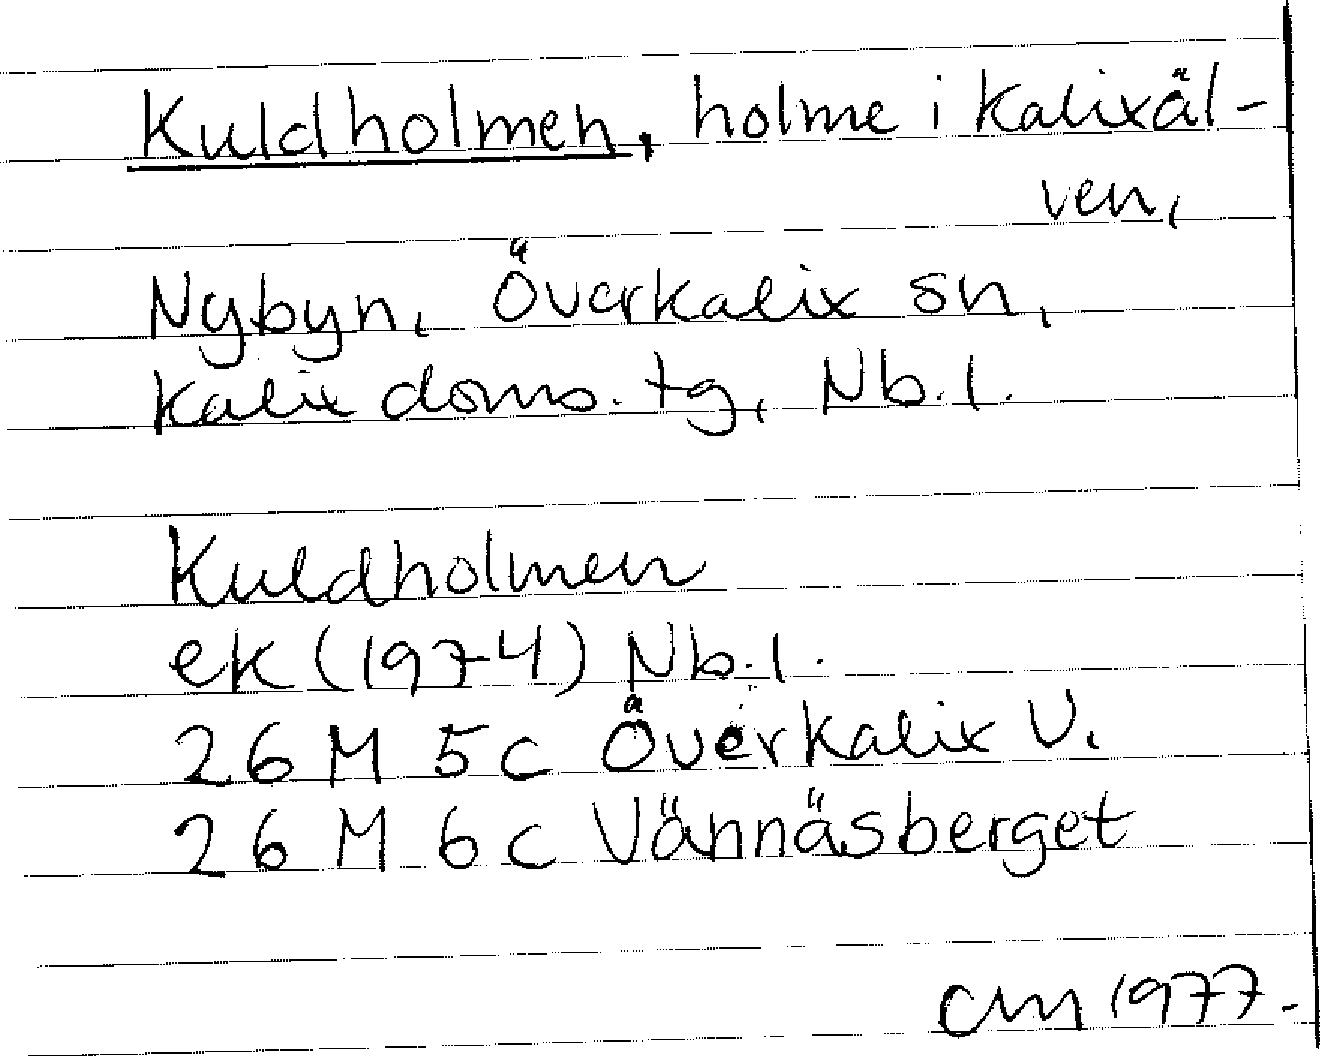 Kuldholmen, holme i Kalixäl-
ven,
Nybyn, Överkalix sn,
Kalix doms. tg, Nb. l.
Kuldholmen
ek (1974) Nb. l.
26 M 5c Överkalix V.
26 M 6c Vännäsberget
CM 1977.